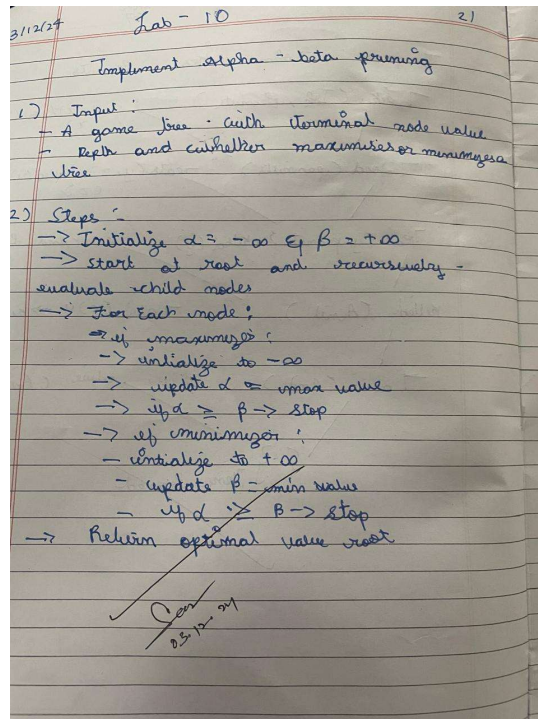 3/12/24 Lab - 10 21
Implement Alpha - beta pruning
1) Input :
- A game tree . with terminal node value
- Depth and whether maximises or minimizes a
tree
2) Steps :-
-> Initialize α = - ∞ & β = +∞
-> start at root and recursively -
evaluate child nodes
-> For Each node :
if maximizer :
-> intialize to -∞
-> update α = max value
-> if α ≥ β -> Stop
-> if minimizer :
- intialize to +∞
- update β = min value
- if α ≥ β -> Stop
-> Return optimal value root
03.12.24